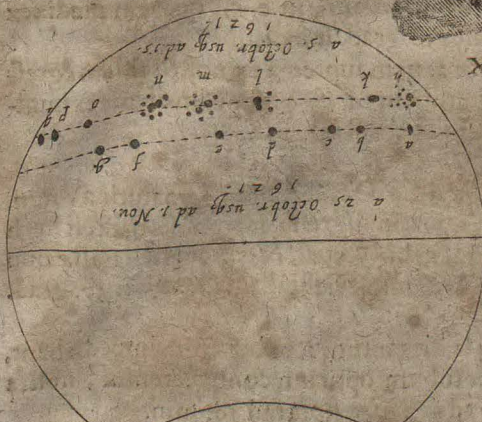 à 25 Octobr. usq; ad 1. Nov.
1621.
a b c d e f g
h k l m n o p q
à 5. Octobr. usq; ad 15.
1621.